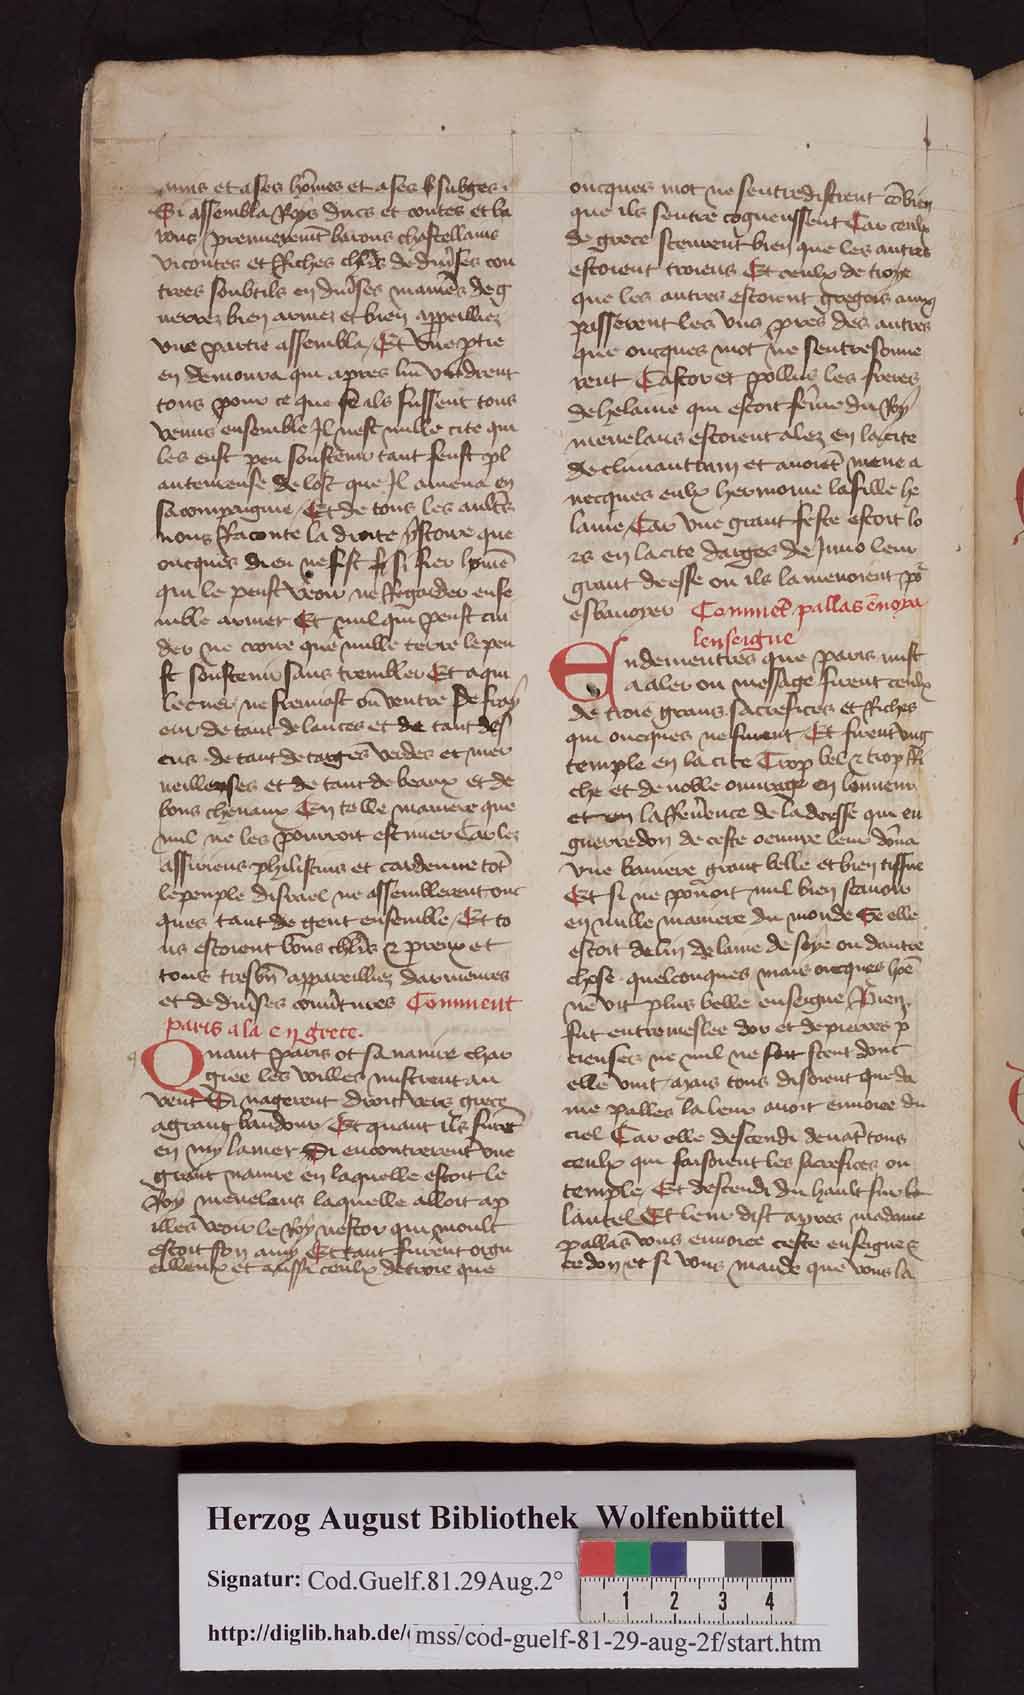 amis et a ses hom̃es et a ses subges.
Si assembla Roys ducs et contes et ba
rons premieremt̃ barons chastellains
vicontes et Riches chl̃rs de div̾ses con
trees soubtils en div̾ses manieres de g
uerrez bien armez et bien appeilliez
vne partie assembla Et vne p̱tie
en demoura qui apres lui vindrent
tous pour ce que se ils fussent tous
venus ensemble Il nest nulle cite qui
les eust peu soustenir tant feust pl
antemeuse de lost que Il amena en
sa compaignie Et de tous les aultr̃s
nous Raconte la droite ystoire que
oncques dieu ne fist si fier hom̃e
qui le peust veoir ne Regarder ense
mble armer Et nul qui peust cui
der ne croire que nulle terre le peu
st soustenir sans trembler Et a qui
le cuer ne fremist ou ventre De fray
eur de tant de lances et de tant des
cus de tant de targes verdes et mer
veilleuses et de tant de beaux et de
bons chevaux En telle maniere que
nul ne les pourroit estimer Car les
assiriens philistins et cardenne tot̃
le peuple disrael ne assemblerent onc
ques tant de gent ensemble Et to
us estoient bons chl̃rs & preux et
tous tresbñ appareilliez darmeures
et de div̾ses couv̾tures Comment
paris ala en grece.
Quant paris ot sa navire char
giee les voilles mistrent au
vent Si nagerent droit vers grece
a grant bandour Et quant ils furẽt
en my la mer Si encontrerent vne
grant navire en laquelle estoit le
Roy menelaus laquelle alloit ap
illes veoir le Roy nestor qui moult
estoit son amy Et tant furent orgu
eilleux et aussi ceulx de troie que
oncques mot ne sentredistrent cõbien
que ils sentre cogneussent Car ceulx
de grece sceurent bien que les autres
estoient troiens Et ceulx de troye
que les autres estoient gregois ainsy
passerent les vns pres des autres
que oncques mot ne sentresonne
rent Castor et pollus les freres
de helaine qui estoit fem̃e du Roy
menelaus estoient alez en la cite
de climantham et avoiẽt mene a
vecques eulx hermoine la fille he
laine Car vne grant feste estoit lo
rs en la cite darges de Juno leur
grant deesse ou ils la menoient po̾
esbanoyer Commẽt pallas ẽnoya
lenseigne
Endementres que paris mist
a aler ou message firent ceulx
de troie grans sacrefices et Riches
qui oncques ne finent Et firent vng
temple en la cite Trop bel & trop Ri
che et de noble ouvrage en lonneur
et en la Rev̾ence de la deesse qui en
guerredon de ceste oeuvre leur dõna
vne baniere grant belle et bien tissue
Et si ne pouoit nul bien scavoir
en nulle maniere du monde Se elle
estoit de lin de laine de soye ou dautre
chose quelconques mais oncques hõe
ne vit plus belle enseigne Bien
fut entremeslee dor et de pierres p
cieuses ne nul ne soit sceut dont
elle vint Mais tous disoient que da
me palles la leur avoit envoiee du
ciel Car elle descendi devãt tous
ceulx qui faisoient les sacrefices ou
temple Et descendi du hault sur le
lautel Et leur dist apres madame
pallas vous envoiee ceste enseigne &
ce don et si vous mande que vous la
Herzog August Bibliothek Wolfenbüttel
Signatur: Cod.Guelf.81.29Aug.2°
1 2 3 4
http://diglib.hab.de/ mss/cod-guelf-81-29-aug-2f/start.htm